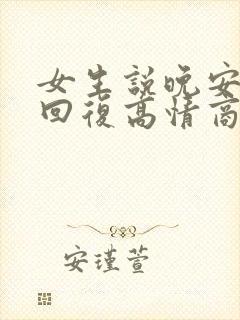 女生說晚安
回復高情商
安瑾萱